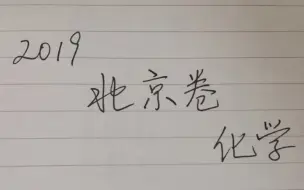 2019
北京卷
化学